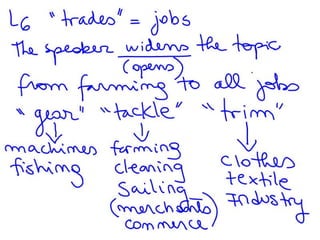 L6 "trades" = jobs
The speaker widens the topic
(opens)
from farming to all jobs
"gear" "tackle" "trim"
machines farming clothes
fishing cleaning textile
sailing industry
(merchants)
commerce